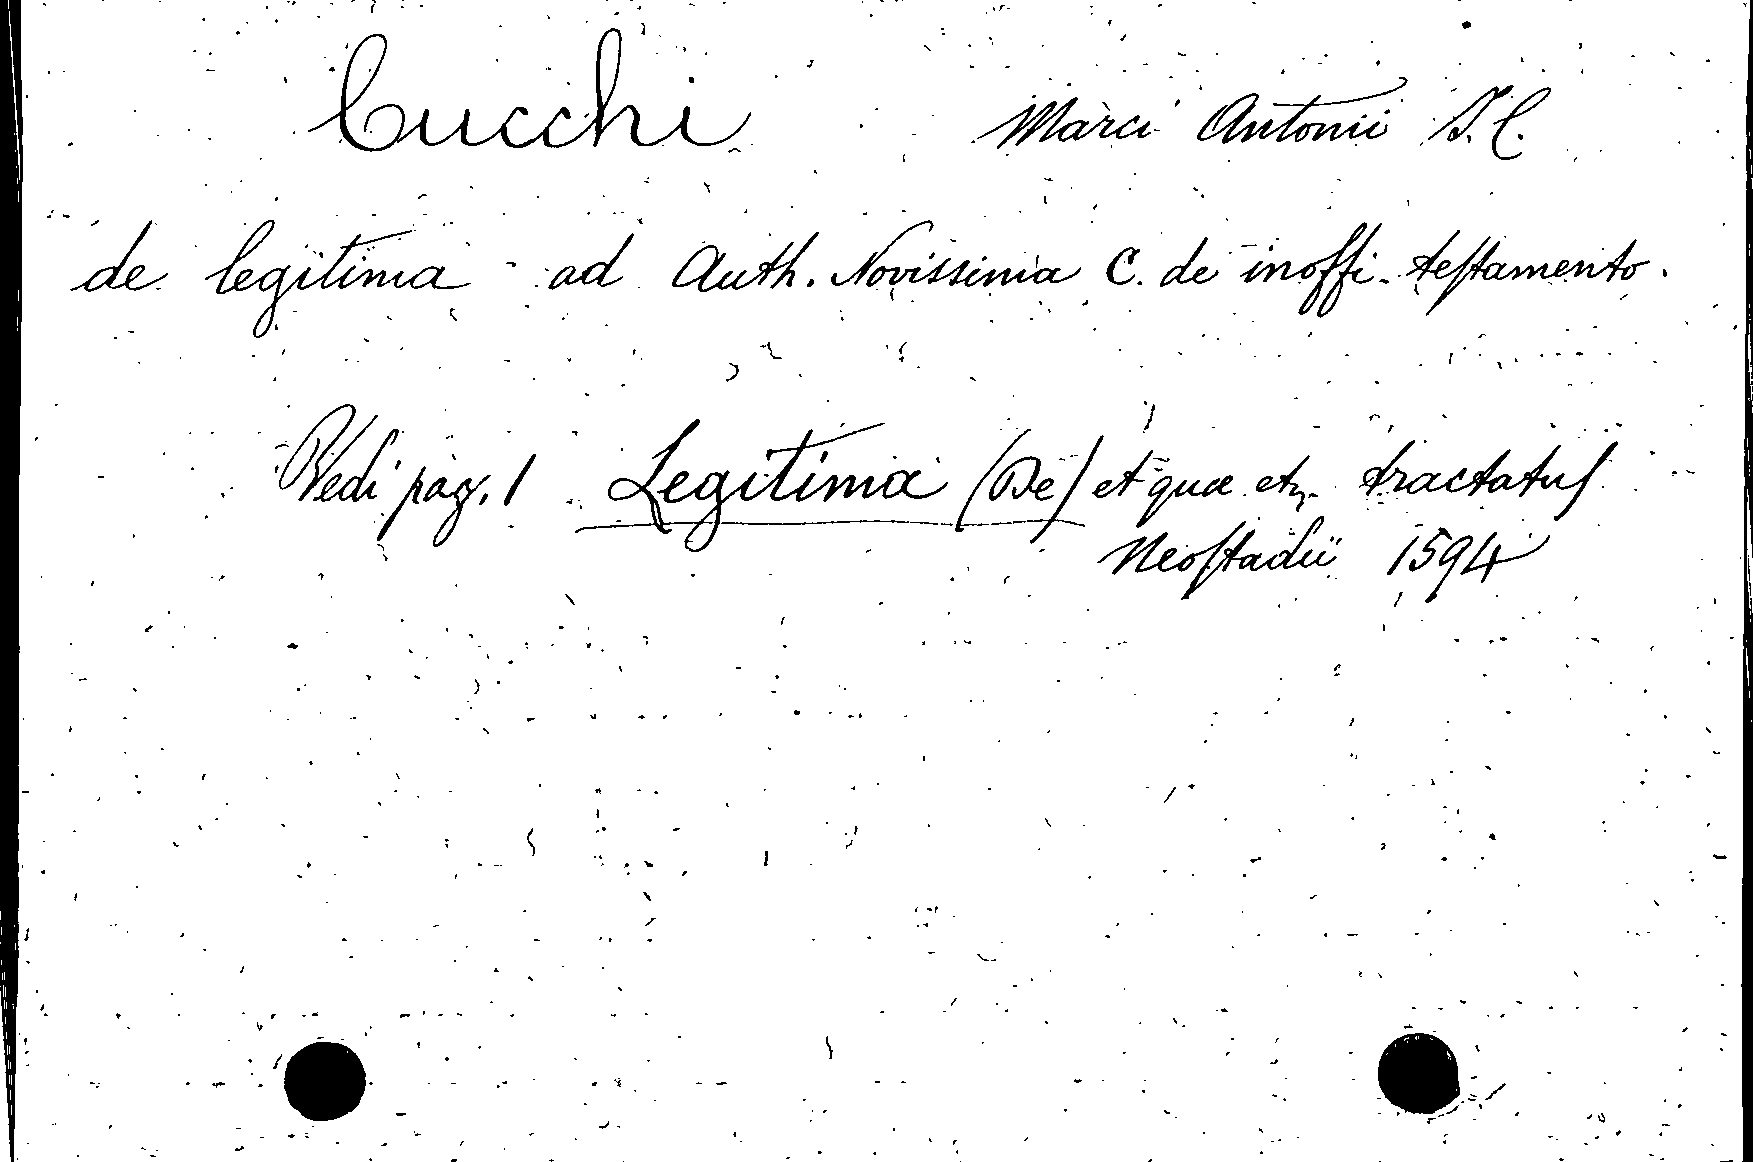 Cucchi Marci Antonii J. C.
de legitima ad Auth. Novissima C. de inoffi. teſtamento.
Vedi pag. 1 Legitima (De) et quæ etz. tractatuſ
Neoſtadii 1594